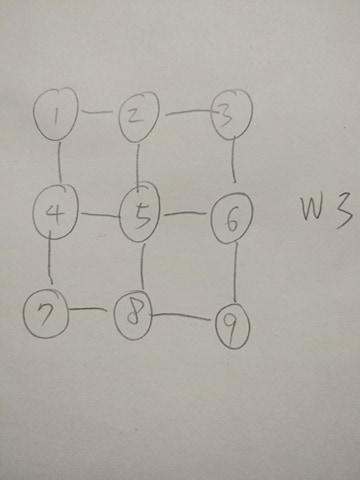 1 2 3
4 5 6 W3
7 8 9